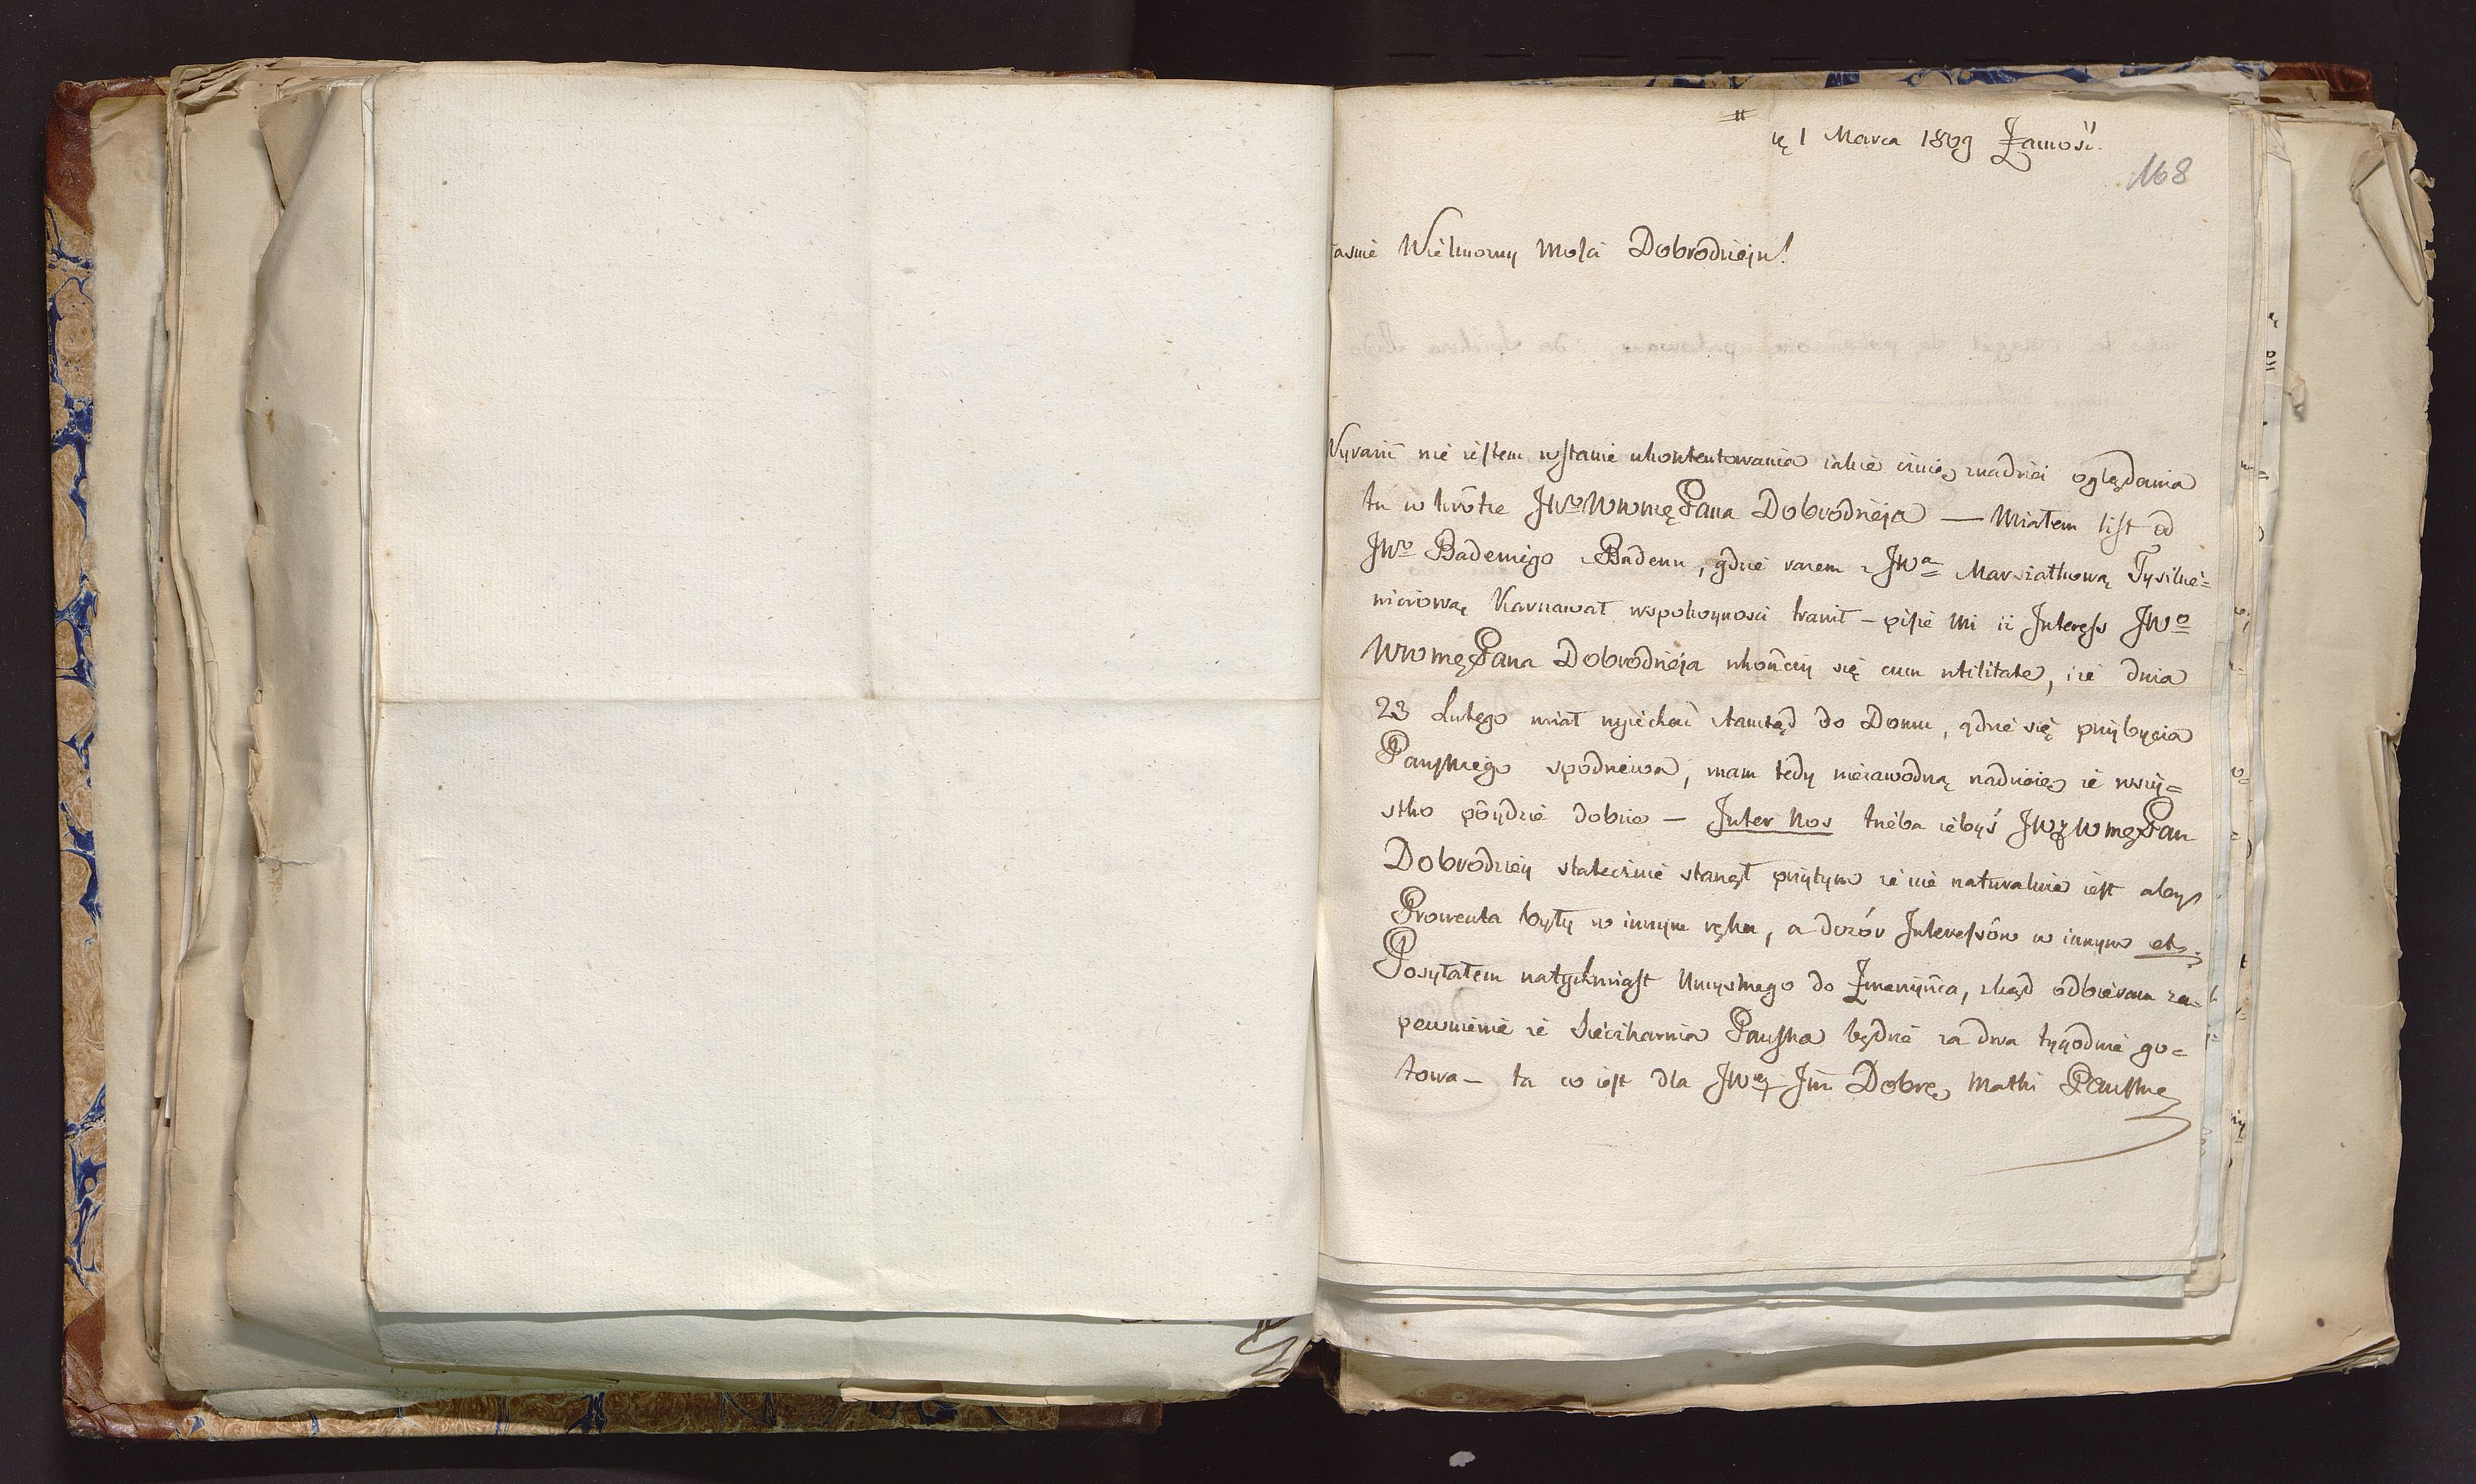 1 Marca 1809 Zamość.
168
Jaśnie Wielmozny Mości Dobrodzieju!
Wyrazić nie iestem wstanie ukontentowania iakie czuię znadziei oglądania
tu w krótce JWo WWMęPana Dobrodzieja — Miałem list od
JWo Badeniego z Badenu, gdzie razem z JWą Marszałkową Tyszkie=
wiczową Karnawał wspokoynosci trawił — pisze mi iż Interess JWo
WWMęPana Dobrodzieja ukończy się cum utilitate, i że dnia
23 Lutego miał wyiechać ztamtąd do Domu, gdzie się przybycia
Panskiego spodziewa, mam tedy niezawodną nadzieię że wszy=
stko póydzie dobrze — Inter Nos trzeba żebyś JW WMęPan
Dobrodziey statecznie stanął przytym że nie naturalnie iest aby
Prowenta były w innym ręku, a dozór Interessów w innym etc
Posyłałem natychmiast Umyslnego do , zkąd odbieram za=
pewnienie że Pańska będzie za dwa tygodnie go=
towa — ta co iest dla JWey Jm Dobrę Matki Panskiey